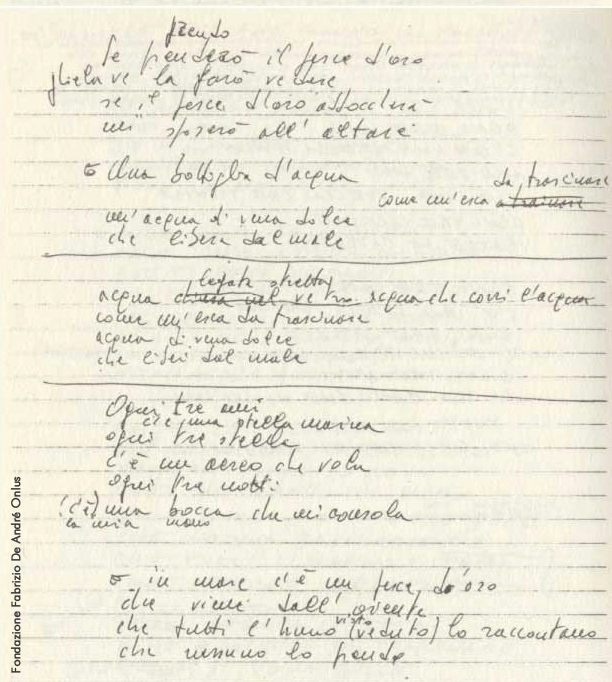 prendo
Se prenderò il pesce d'oro
gliela ve la farò vedere
se il pesce d'oro abboccherà
mi sposerò all'altare
Una bottiglia d'acqua
come un'esca a trainare da trascinare
un'acqua di vena dolce
che libera dal male
legata stretta
acqua chiusa nel vetro acqua che corri l'acqua
come un'esca da trascinare
acqua di vena dolce
che liberi dal male
Ogni tre ami
c'è una stella marina
ogni tre stelle
c'è un aereo che vola
ogni tre notti
(c'è) una bocca che mi consola
la mia mano
in mare c'è un pesce d'oro
che viene dall'oriente
visto
che tutti l'hanno (veduto) lo raccontano
che nessuno lo prende
Fondazione Fabrizio De André Onlus